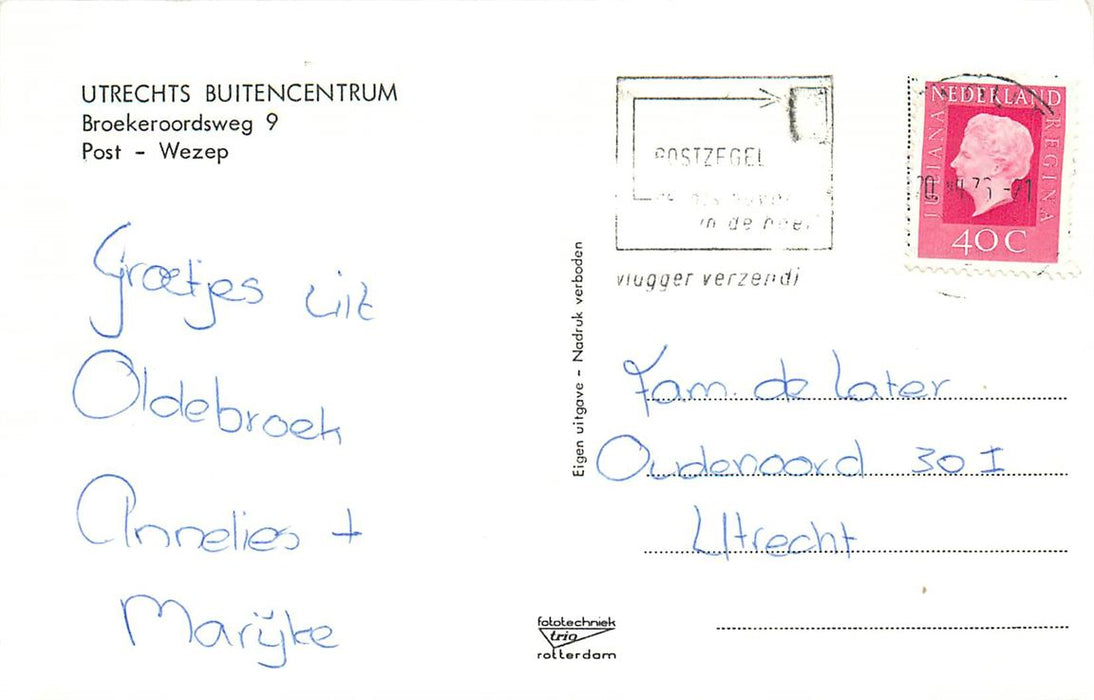 UTRECHTS BUITENCENTRUM
Broekeroordsweg 9
Post - Wezep
Groetjes uit
Oldebroek
Annelies +
Marijke
Eigen uitgave - Nadruk verboden
fototechniek
trio
rotterdam
POSTZEGEL
in de hoek
vlugger verzend!
NEDERLAND
JULIANA
REGINA
40 C
Fam. de Later
Oudenoord 30 I
Utrecht